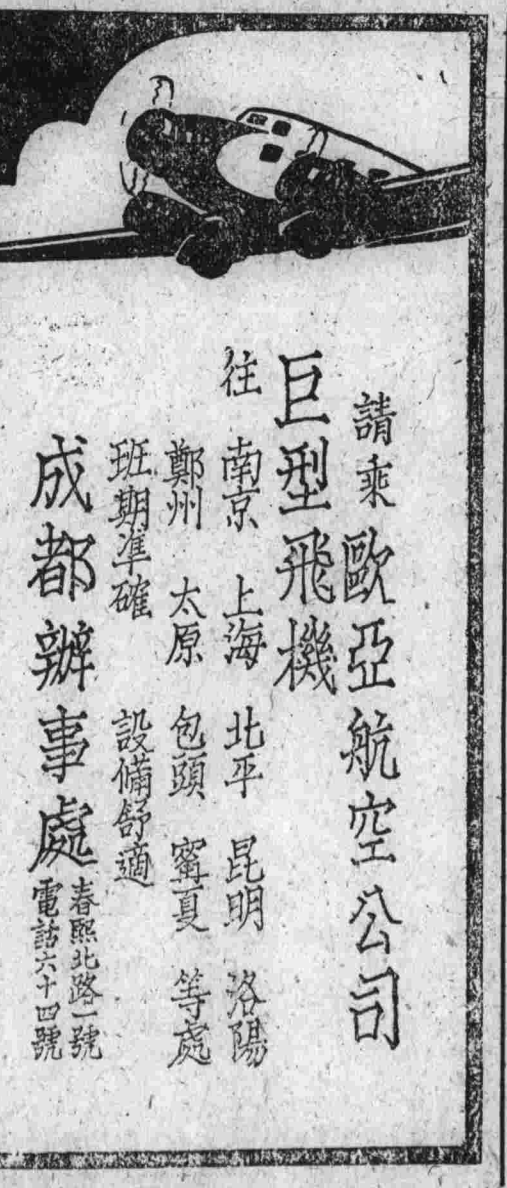 請乘歐亞航空公司
巨型飛機
往 南京 上海 北平 昆明 洛陽
鄭州 太原 包頭 甯夏 等處
班期準確 設備舒適
成都辦事處
春熙北路一號
電話六十四號